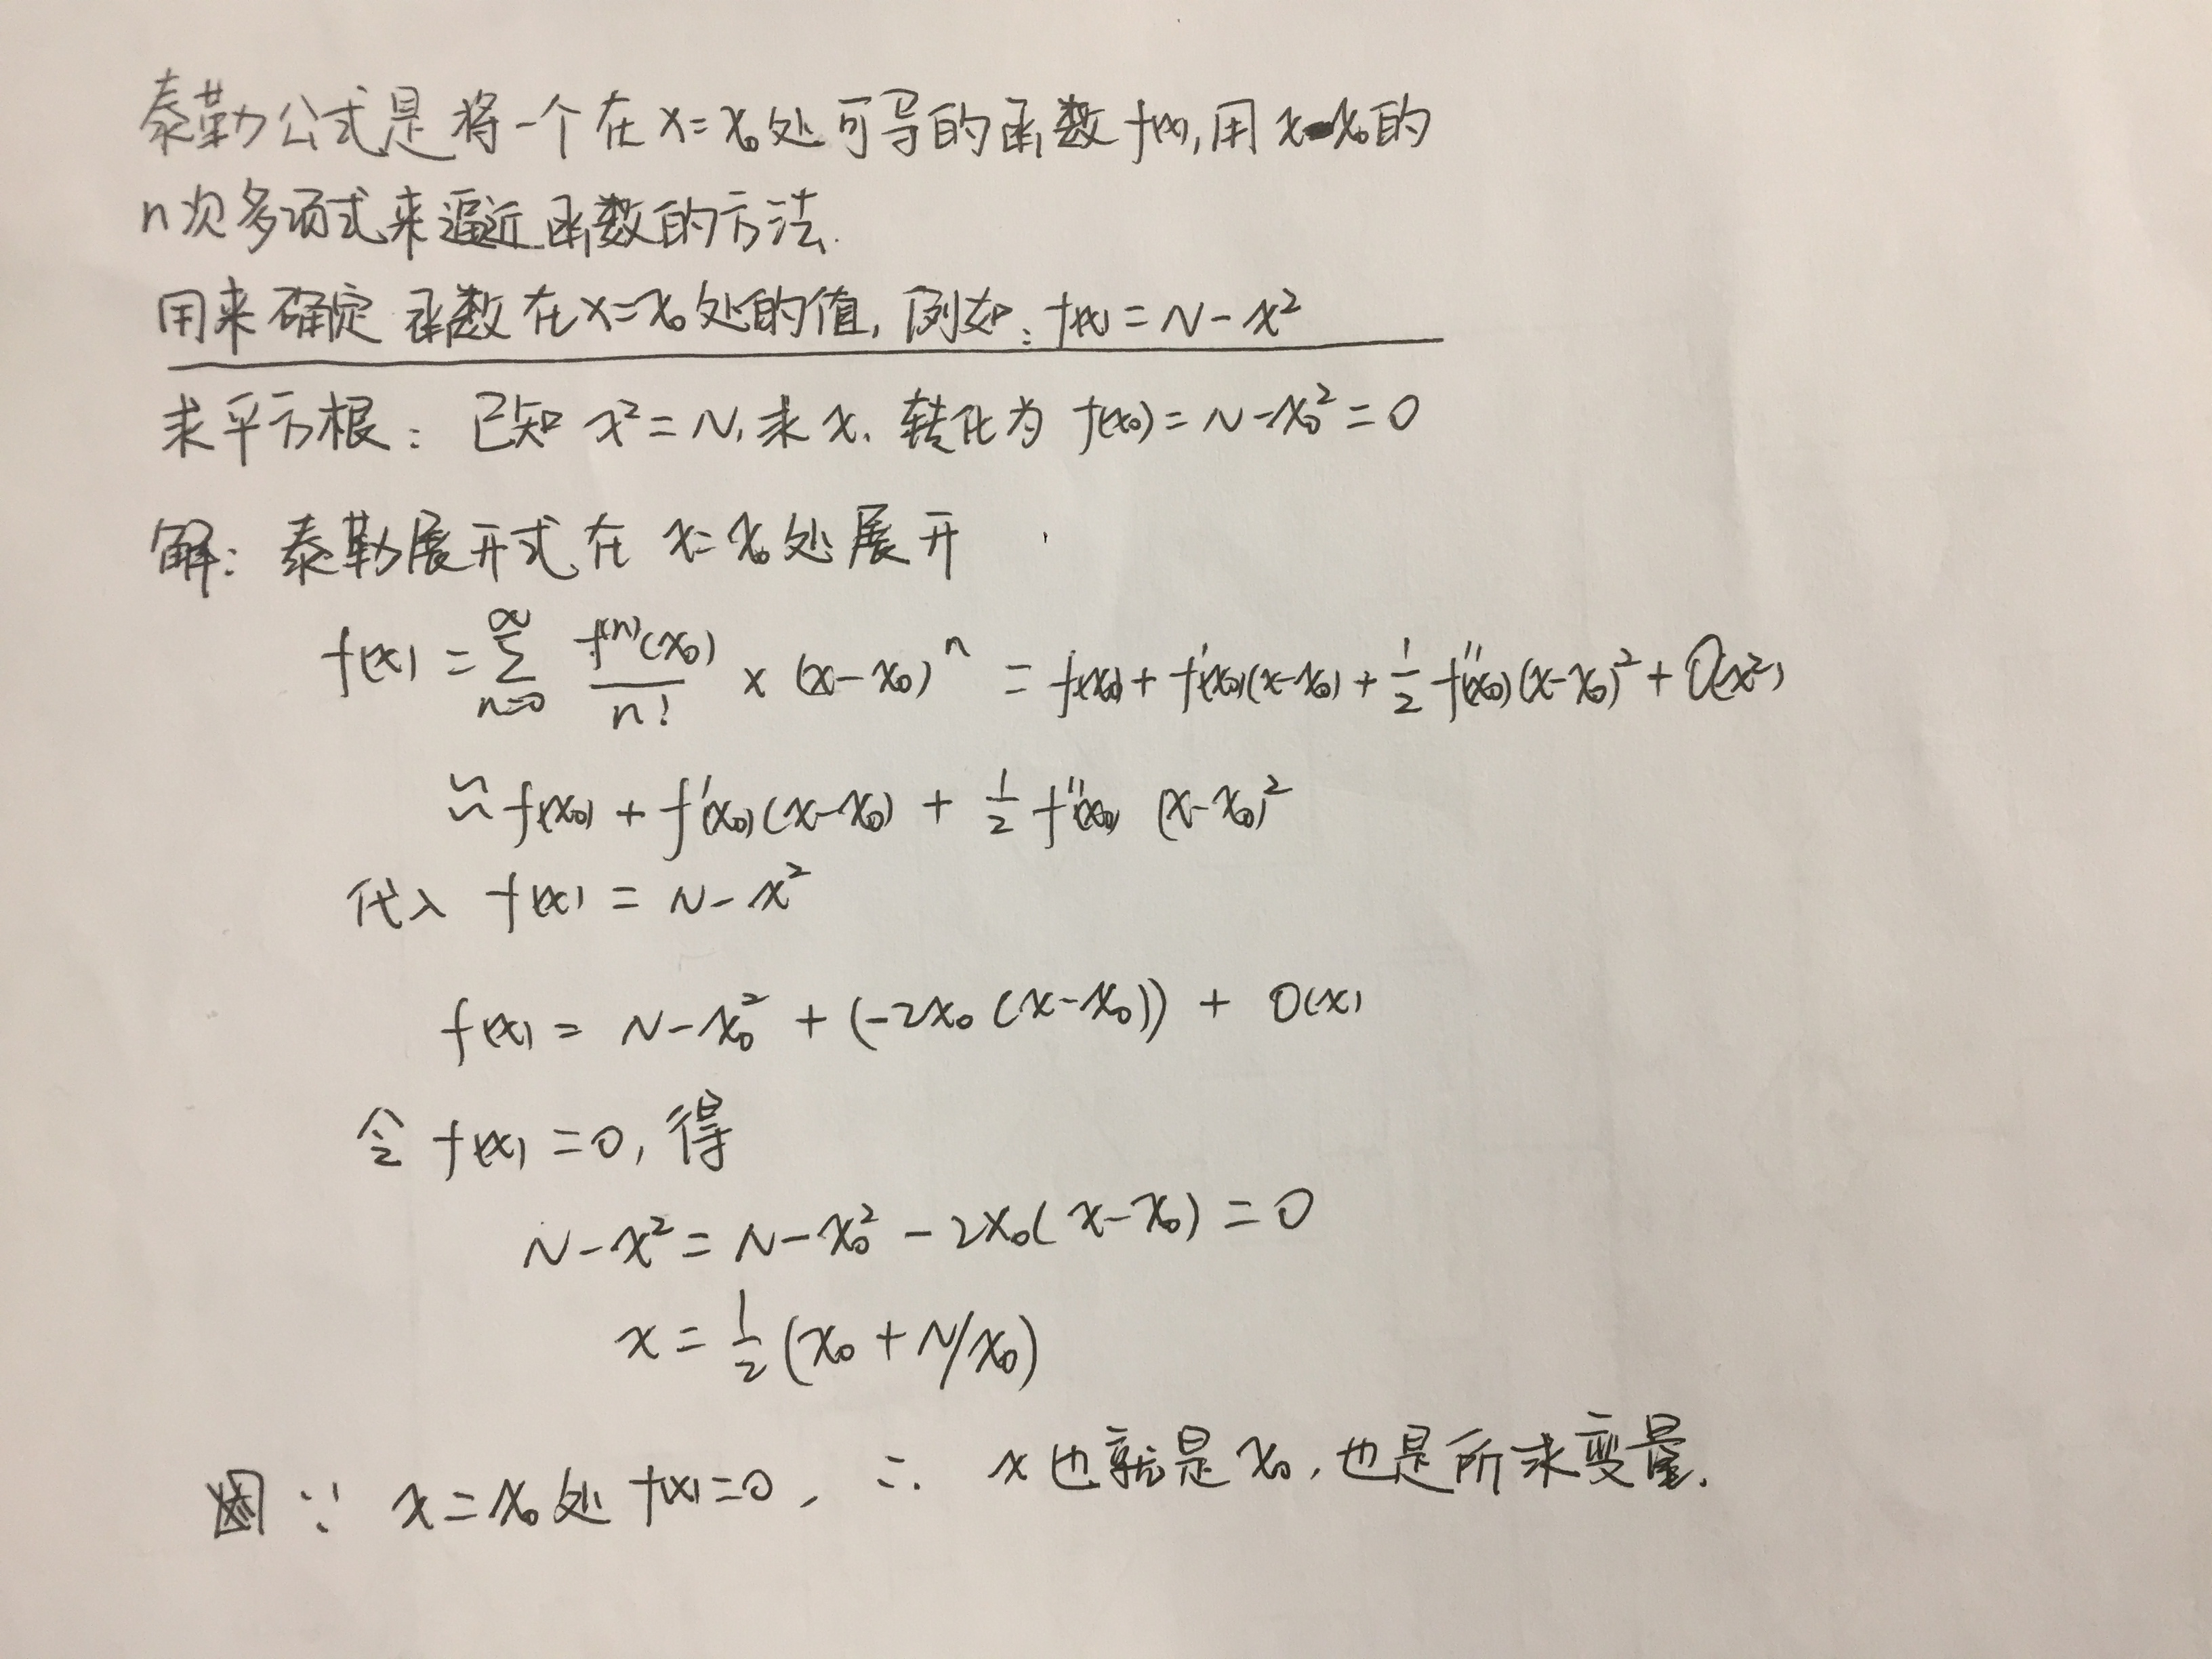 泰勒公式是将一个在x=x₀处可导的函数f(x),用x-x₀的
n次多项式来逼近函数的方法.
用来确定函数在x=x₀处的值,例如:f(x)=N-x²
求平方根:已知x²=N,求x.转化为f(x₀)=N-x₀²=0
解:泰勒展开式在x=x₀处展开
f(x)=∑_{n=0}^{∞} f⁽ⁿ⁾(x₀)/n! × (x-x₀)ⁿ = f(x₀)+f'(x₀)(x-x₀)+1/2 f''(x₀)(x-x₀)²+O(x²)
≈f(x₀)+f'(x₀)(x-x₀)+1/2 f''(x₀)(x-x₀)²
代入 f(x)=N-x²
f(x)=N-x₀²+(-2x₀(x-x₀))+O(x)
令f(x)=0,得
N-x²=N-x₀²-2x₀(x-x₀)=0
x=1/2(x₀+N/x₀)
∵ x=x₀处f(x)=0, ∴ x也就是x₀,也是所求变量.